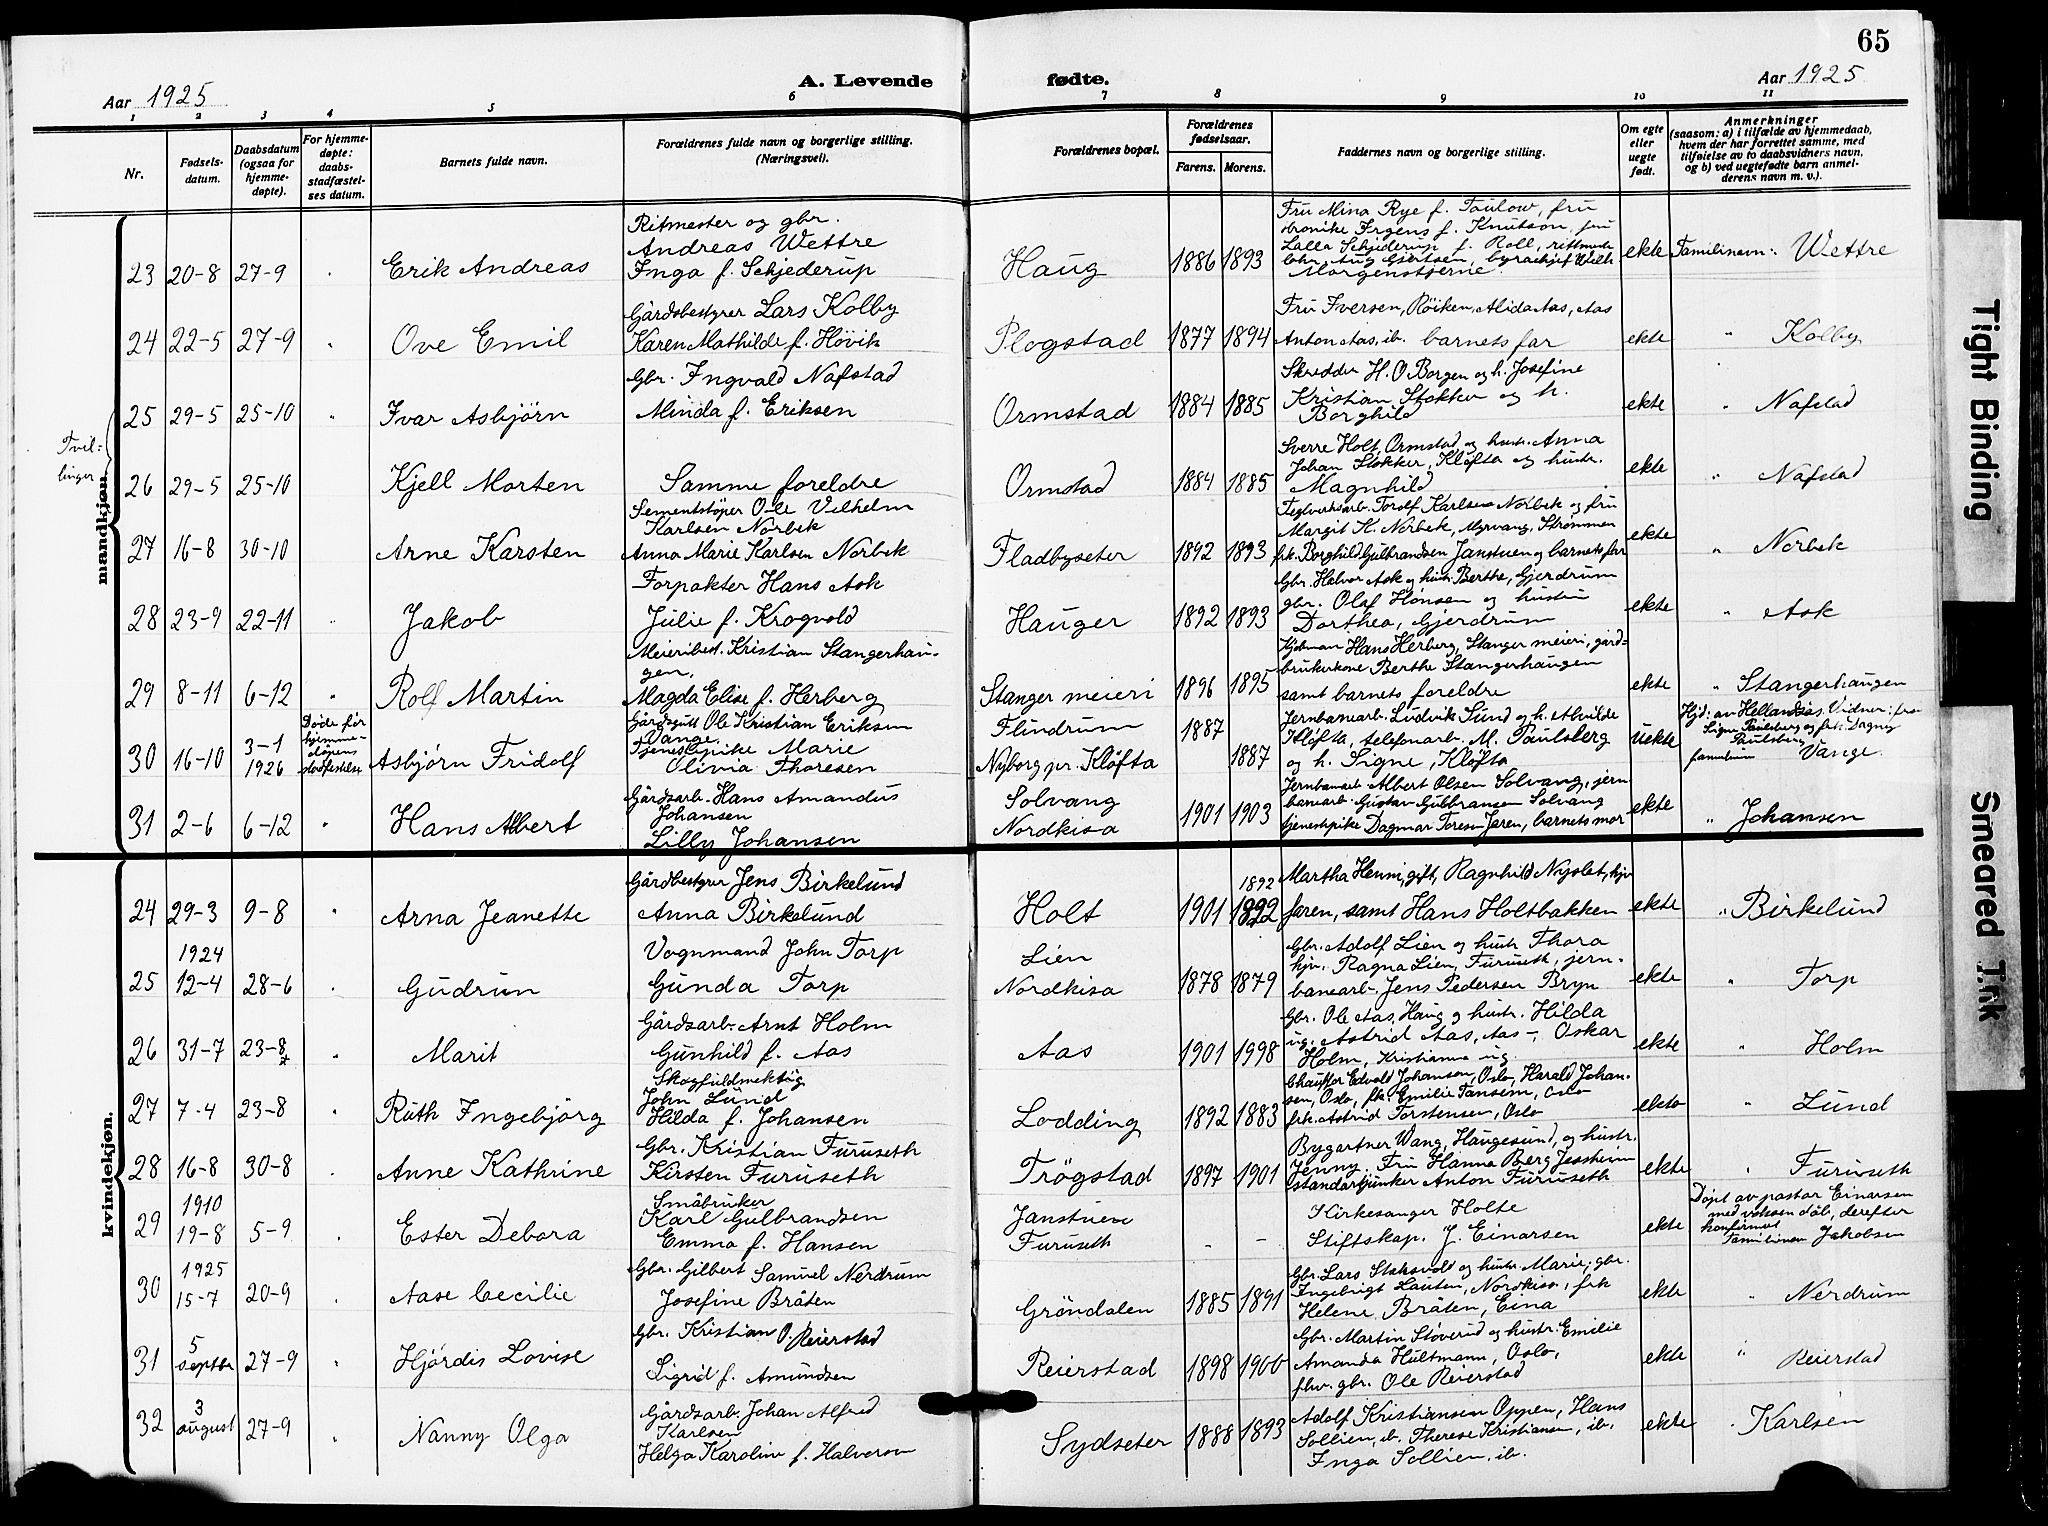 65
Aar 1925
A. Levende fødte.
Aar 1925
1 2 3 4 5 6 7 8 9 10 11
Nr.
Fødsels-
datum.
Daabsdatum
(ogsaa for
hjemme-
døpte).
For hjemme-
døpte:
daabs-
stadfæstel-
ses datum.
Barnets fulde navn.
Forældrenes fulde navn og borgerlige stilling.
(Næringsvei).
Forældrenes bopæl.
Forældrenes
fødselsaar.
Farens. Morens.
Faddernes navn og borgerlige stilling.
Om egte
eller
uegte
født.
Anmerkninger
(saasom: a) i tilfælde av hjemmedaab,
hvem der har forrettet samme, med
tilføielse av to daabsvidners navn.
og b) ved uegtefødte barn anmel-
derens navn m. v.).
mandkjøn.
23 20-8 27-9 " Erik Andreas
Ritmester og gbr.
Andreas Wettre
Inga f. Schjederup
Haug 1886 1893
Fru Mina Rye f. Taulow, fru
Irgens f. Knutson, fru
Lalla Schjederup f. Roll,
Morgenstjerne.
ekte Familienavn: Wettre
24 22-5 27-9 " Ove Emil
Gårdsbestyrer Lars Kolby
Karen Mathilde f. Hövik
Plogstad 1877 1894
Fru Iversen, Röiken, Alida Aas, Aas
Anton Aas, ib. barnets far
ekte " Kolby
Tvil-
linger
25 29-5 25-10 " Ivar Asbjörn
Gbr. Ingvald Nafstad
Minda f. Eriksen
Ormstad 1884 1885
Skredder H. O Borgen og h. Josefine
Kristian Stokker og h.
Borghild
ekte " Nafstad
26 29-5 25-10 Kjell Morten
Samme foreldre
Ormstad 1884 1885
Sverre Holt, Ormstad og hustr. Anna
Johan Stokker, Klöfta og hustr.
Magnhild
ekte " Nafstad
27 16-8 30-10 Arne Karsten
Sementstöper Ole Vilhelm
Karlsen Norbek
Anna Marie Karlsen Norbek
Fladbyseter 1892 1893
Teglverksarb. Torolf Karlsen Norbek og fru
Margit K. Norbek, Myrvang, Strömmen
frk. Borghild Gulbrandsen Janstuen og barnets far
ekte " Norbek
28 23-9 22-11 " Jakob
Forpakter Hans Ask
Julie f. Krogvold
Hauger 1892 1893
Gbr. Halvor Ask og hustr. Berthe, Gjerdrum
gbr. Olaf Hönsen og hustru
Dorthea, Gjerdrum
ekte " Ask
29 8-11 6-12 " Rolf Martin
Meieribest. Kristian Stangerhau-
gen,
Magda Elise f. Herberg
Stanger meieri 1896 1895
Hans Herberg, Stanger meieri, gård-
brukerkone Berthe Stangerhaugen
samt barnets foreldre
ekte " Stangerhaugen
30 16-10 3-1
1926
Döde för
hjemme-
dåpens
stadfestelse
Asbjörn Fridolf
Gårdsgutt Ole Kristian Eriksen
Vange.
Tjenestepike Marie
Olivia Thoresen
Flindrum 1887
Nyborg pr. Klöfta 1887
Jernbanearb. Ludvik Sund og h. Alvilde
Klöfta, telefonarb. M. Paulsberg
og h. Signe, Klöfta
uekte
Hjd: av Hellandsås. Vidner: fru
Signe Paulsberg og frk. Dagny
Paulsberg
familienavn Vange.
31 2-6 6-12 " Hans Albert
Gårdsarb. Hans Amandus
Johansen
Lilly Johansen
Solvang
Nordkisa 1901 1903
Jernbanearb. Albert Olsen Solvang, jern
banearb. Gustav Gulbransen Solvang
tjenestepike Dagmar Toresen Jaren, barnets mor
ekte " Johansen
kvindekjøn.
24 29-3 9-8 " Arna Jeanette
Gårdbestyrer Jens Birkelund
Anna Birkelund
Holt 1901 1892
1892
Martha Henni, gift, Ragnhild Nyslet, hjv
faren, samt Hans Holtbakken
ekte " Birkelund
25 1924
12-4 28-6 " Gudrun
Vognmand John Torp
Gunda Torp
Lien
Nordkisa 1878 1879
Gbr. Adolf Lien og hustr Thora
hjv. Ragna Lien, Furuseth, jern-
banearb. Jens Pedersen Bryn
ekte " Torp
26 31-7 23-8 " Marit
Gårdsarb. Arnt Holm
Gunhild f. Aas
Aas 1901 1998
Gbr. Ole Aas, Haug og hustr. Hilda
ug. Astrid Aas, Aas -, Oskar
Holm, Kristianne ug.
ekte " Holm
27 7-4 23-8 " Ruth Ingebjörg
Skogfuldmektig
John Lund
Hilda f. Johansen
Lodding 1892 1883
Chaufför Edvald Johansen, Oslo, Harald Johan-
sen, Oslo, frk Emilie Fansem, Oslo
frk. Astrid Torstensen, Oslo
ekte " Lund
28 16-8 30-8 " Anne Kathrine
Gbr. Kristian Furuseth
Kirsten Furuseth
Trögstad 1897 1901
Bygartner Wang, Haugesund, og hustr.
Jenny. Fru Hanna Berg Jessheim
standartjunker Anton Furuseth
ekte " Furuseth
29 1910
19-8 5-9 " Ester Debora
Småbruker
Karl Gulbrandsen
Emma f. Hansen
Janstuen
Furuseth - -
Kirkesanger Holte
Stiftskap. J. Einarsen
ekte
Döpt av pastor Einarsen
med voksen dåb, derefter
konfirmert
Familienavn Jakobsen
30 1925
15-7 20-9 " Aase Cecilie
Gbr. Gilbert Samuel Nerdrum
Josefine Bråten
Gröndalen 1885 1891
Gbr. Lars Stoksvold og hustr Marie, gbr.
Ingebrigt Lauten, Nordkisa, frk
Helene Bråten, Eina
ekte " Nerdrum
31 5
septbr 27-9 " Hjördis Lovise
Gbr. Kristian O. Reierstad
Sigrid f. Amundsen
Reierstad 1898 1900
Gbr. Martin Stöverud og hustr. Emilie
Amanda Hultmann, Oslo,
fhv. gbr. Ole Reierstad
ekte " Reierstad
32 3
august 27-9 " Nanny Olga
Gårdsarb. Johan Alfred
Karlsen
Helga Karoline f. Halvorsen
Sydseter 1888 1893
Adolf Kristiansen Oppen, Hans
Sollien, ib. Therese Kristiansen, ib.
Inga Sollien, ib.
ekte " Karlsen
Tight Binding
Smeared Ink